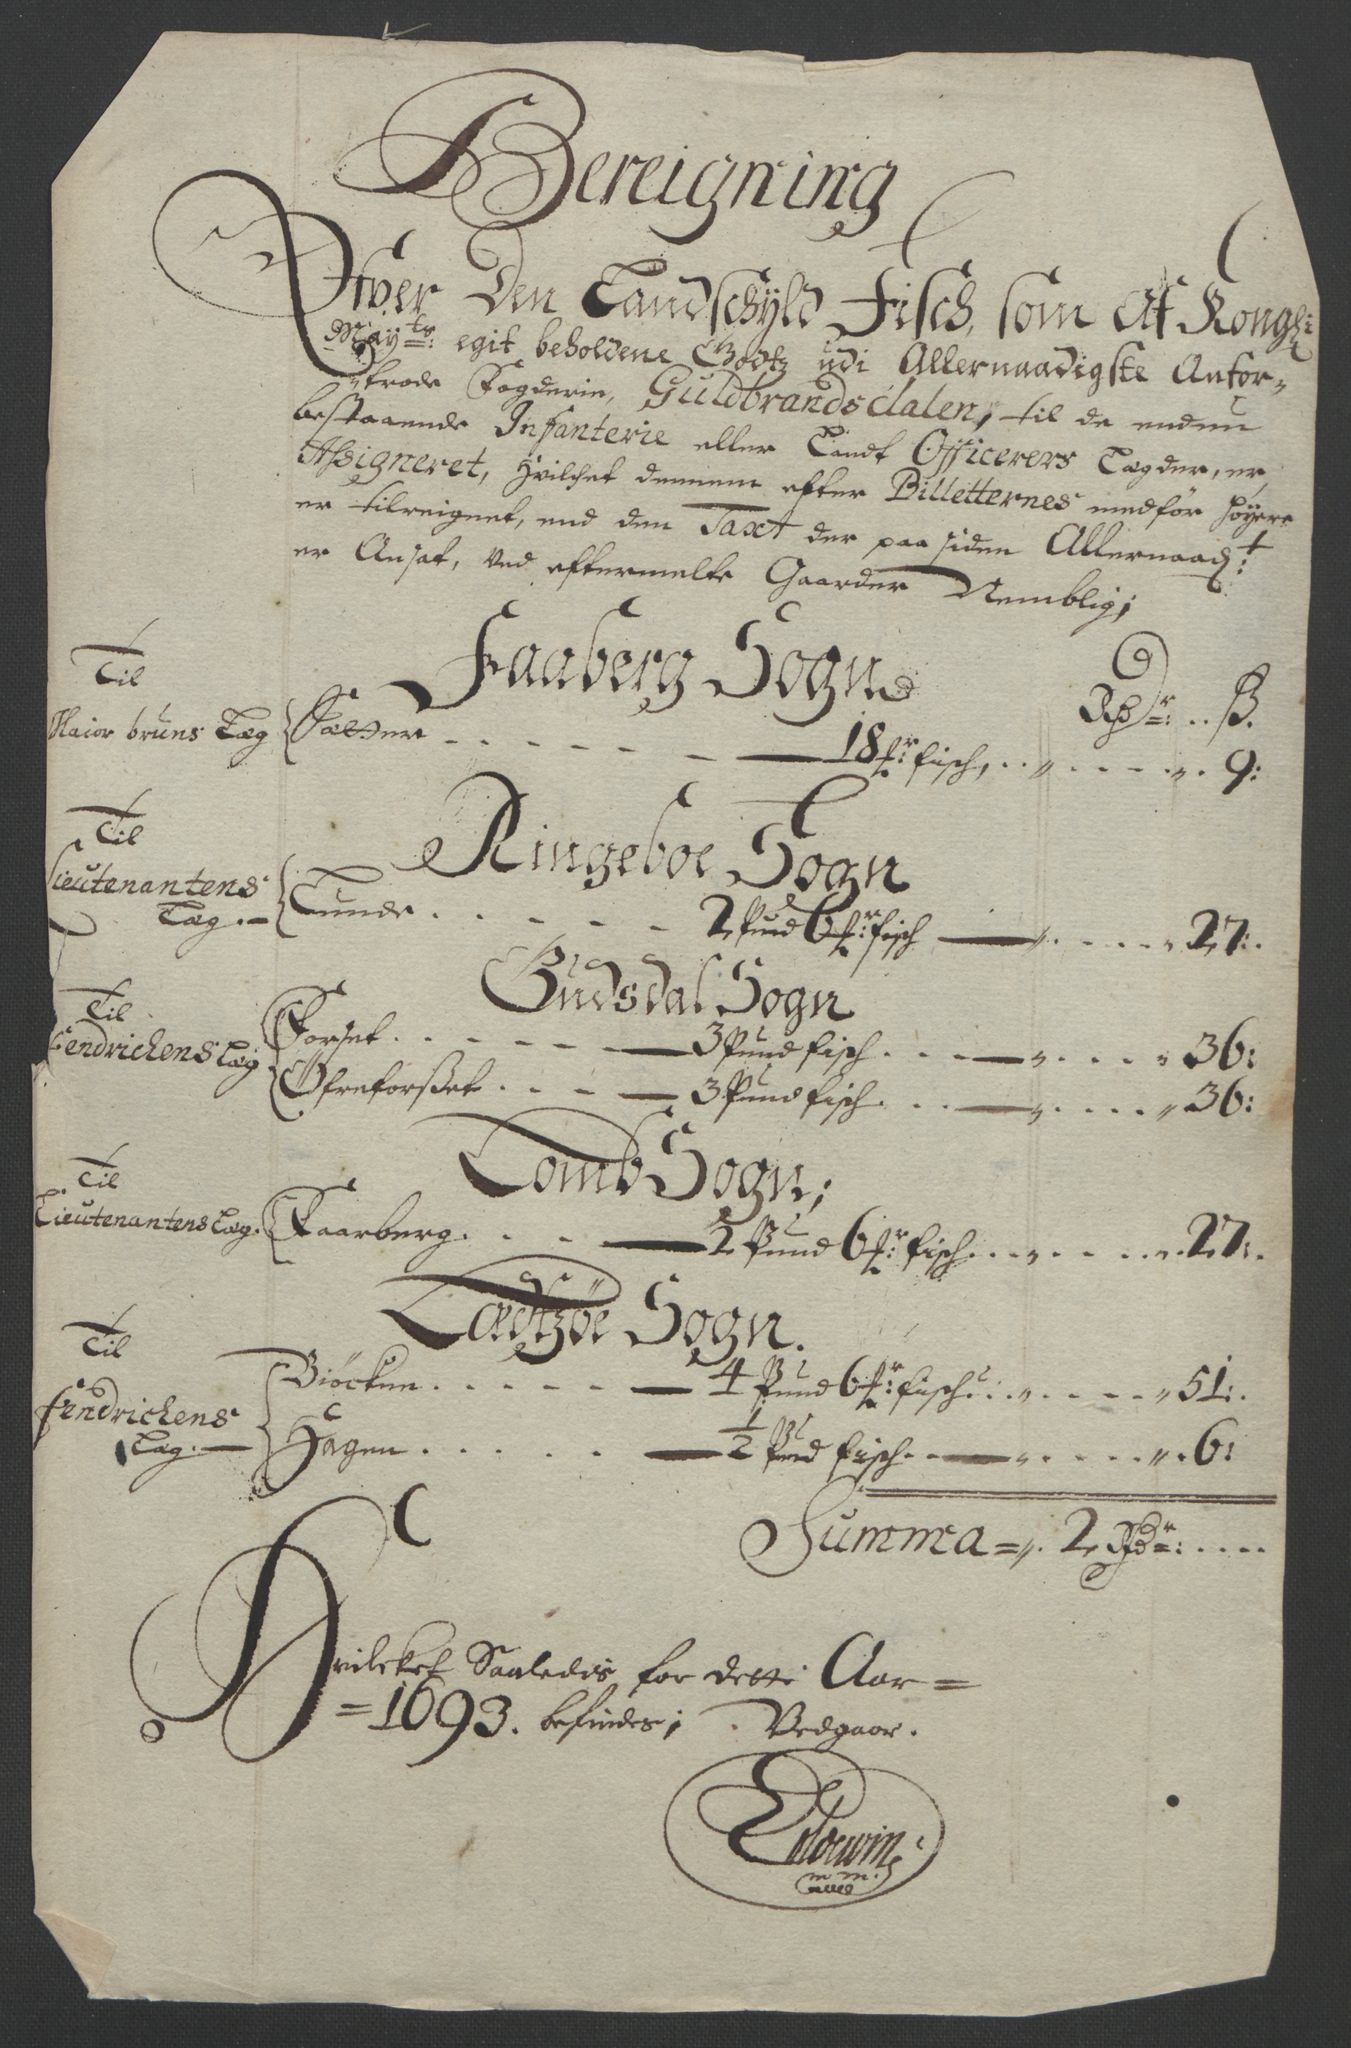 Bereigning
Ofver Den Landschÿld Fisch, som Af Kongl:
Maÿtz: egit beholdene Godtz udi Allernaadigste Anfor-
trode Fogderie, Guldbrandsdalen, til de enden
bestaaende Infanterie eller Landt Officerers Lægder, er
Assigneret, hvilchet dennem efter Billetternes medför höÿere
er tilreignet, end den Taxt der paa siden Allernaadt:
er Ansat, ved eftermelte Gaarder Nemblig;
Faaberg Sogn
Rdr: .. ß.
Til
Maior bruns Læg { Sættere - - - 18 fr: fisch, .. „ .... „ . 9:
Ringeboe Sogn
Til
Lieutenantens
Læg. { Lunde . . . . 2 Pund 6 fr: fisch — „ .... „ 27:
Gudsdal Sogn
Til
Fendrichens Læg { Forset . . . . 3 Pund fisch . . . — „ .... „ 36:
Øfreforsset . . . . 3 Pund fisch . . . — „ .... „ 36:
Lomb Sogn;
Til
Lieutenantens Læg. { Faarberg. . . . 2 Pund 6 fr: fisch . . . „ .... „ 27:
Læssøe Sogn.
Til
Fendrichens
Læg. { Biöcken . . . . 4 Pund 6 fr: fisch . . „ .... „ 51:
Hagen . . . . ½ Pund fisch . . — „ .... „ . 6:
Summa = „ . 2 Rdr: ....
Hvilcket Saaledis for dette Aar =
= 1693. befindes; Vedgaar.
m m.